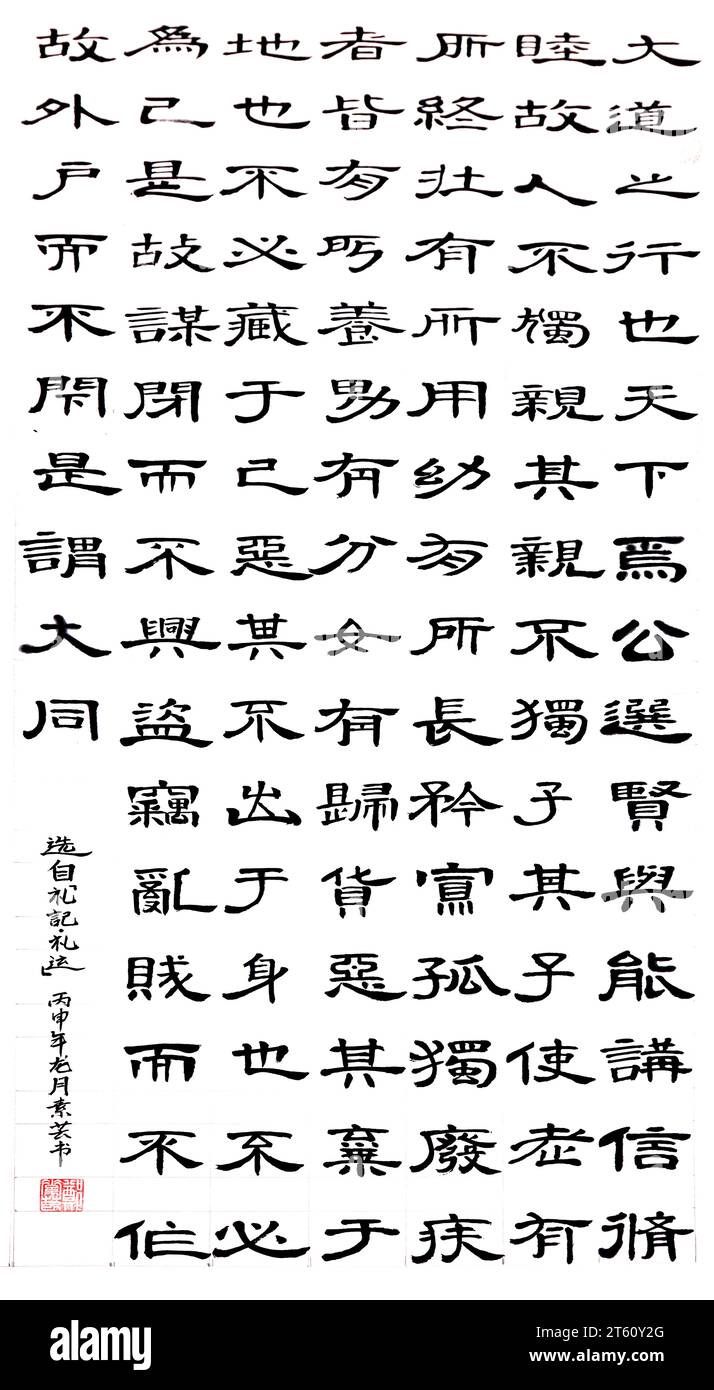 大道之行也天下為公選賢與能講信脩
睦故人不獨親其親不獨子其子使老有
所終壯有所用幼有所長矜寡孤獨廢疾
者皆有所養男有分女有歸貨惡其棄于
地也不必藏于己惡其不出于身也不必
爲己是故謀閉而不興盜竊亂賊而不作
故外户而不閉是謂大同
选自礼記·礼运」
丙申年龙月素芸书
alamy
Image ID: 2T60Y2G
www.alamy.com